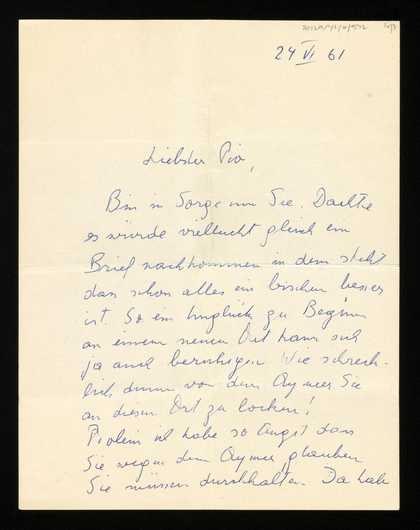 24 VI 61
Liebster Pio,
Bin in Sorge um Sie. Dachte
es würde vielleicht gleich ein
Brief nachkommen in dem steht
dass schon alles ein bisschen besser
ist. So ein Unglück zu Beginn
an einem neuen Ort kann sich
ja auch beruhigen. Wie schreck-
lich dumm von dem Aymer Sie
an diesen Ort zu locken!
Piolein ich habe so Angst dass
Sie wegen dem Aymer glauben
Sie müssen durchhalten. Da hab